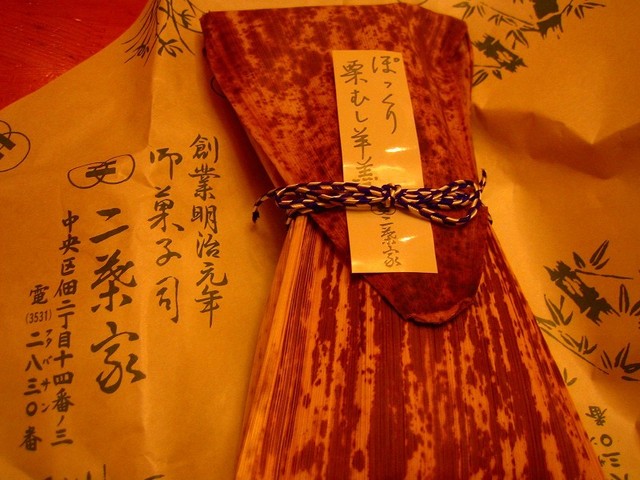 ぽっくり
栗むし羊羹
二葉家
創業明治元年
御菓子司
二葉家
中央区佃二丁目十四番ノ三
電(3531)二八三〇番
フタバサン